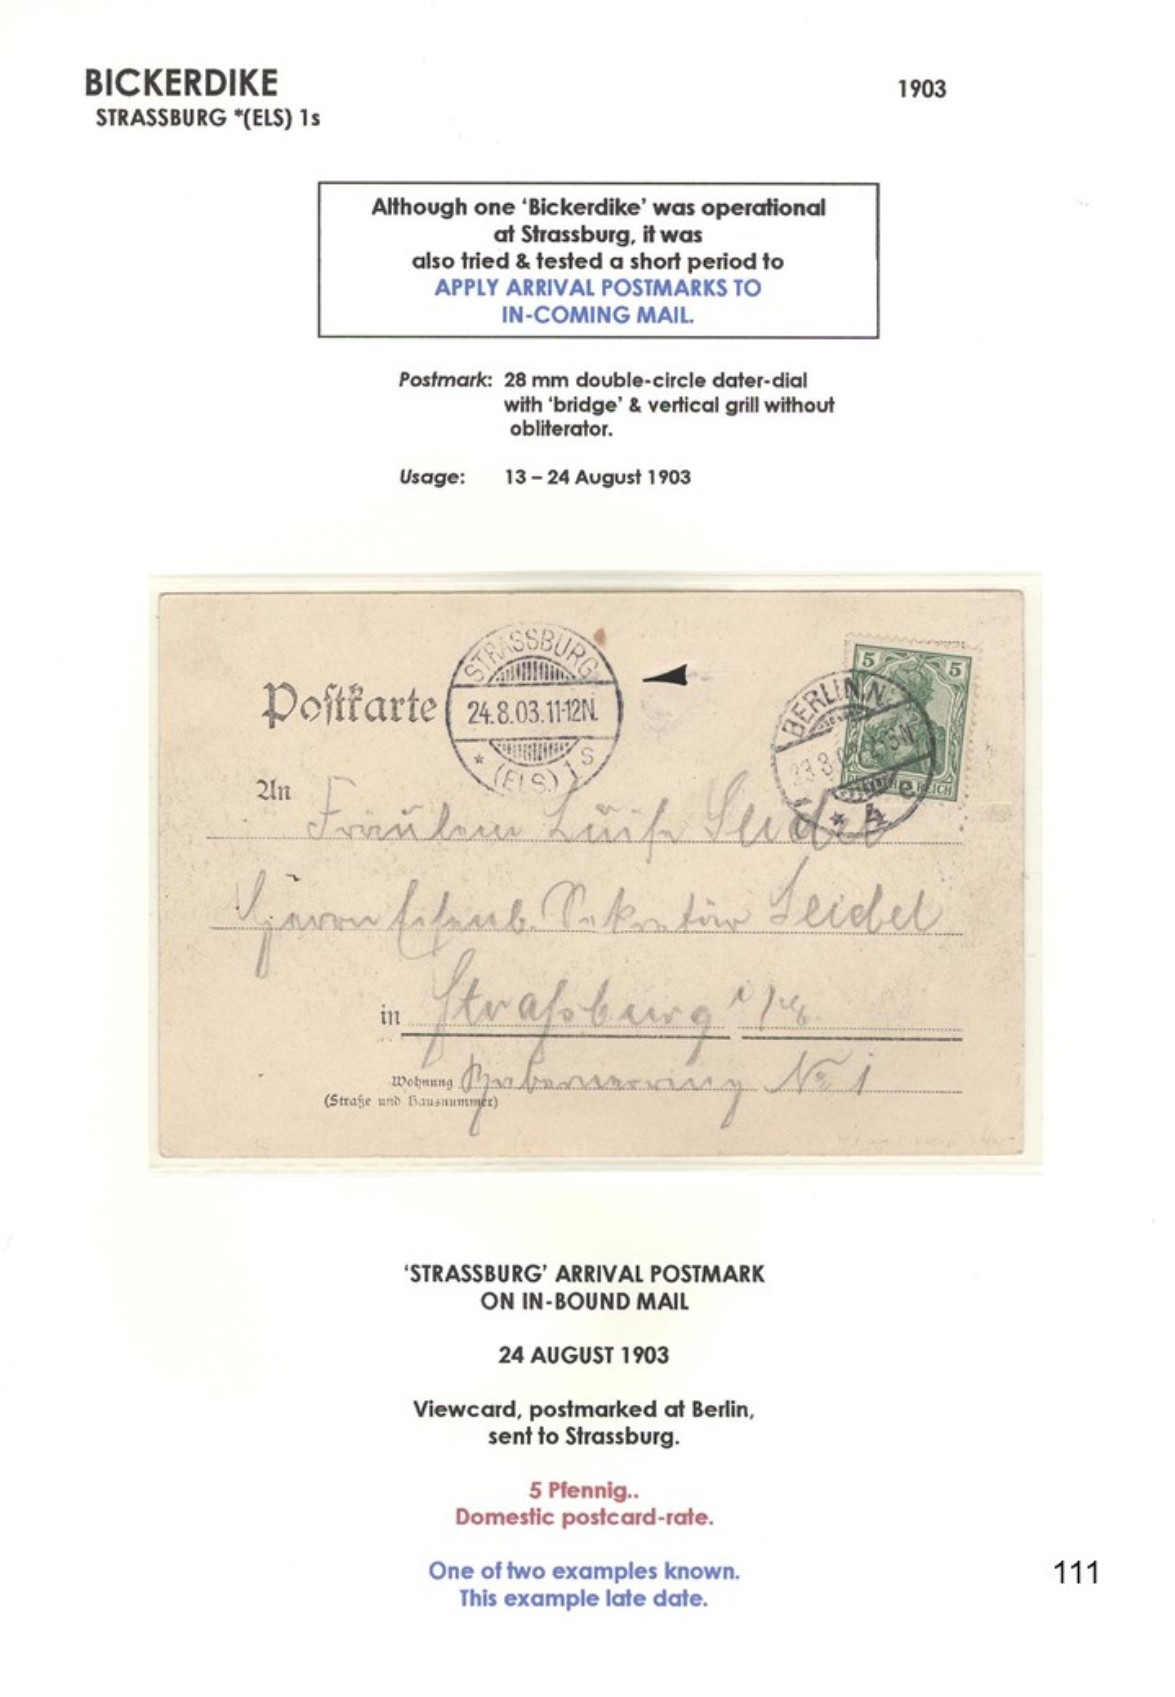 BICKERDIKE
1903
STRASSBURG *(ELS) 1s
Although one ‘Bickerdike’ was operational
at Strassburg, it was
also tried & tested a short period to
APPLY ARRIVAL POSTMARKS TO
IN-COMING MAIL.
Postmark: 28 mm double-circle dater-dial
with ‘bridge’ & vertical grill without
obliterator.
Usage: 13 – 24 August 1903
Postkarte
STRASSBURG
24.8.03.11-12N.
* (ELS.) 1 S
5 5
BERLIN N.
* 4 e
REICH
An Fräulein Luise Seidel
Herrn Eisenb. Sekretär Seidel
in Strassburg i/E.
Wohnung Zabernerring No 1
(Straße und Hausnummer)
‘STRASSBURG’ ARRIVAL POSTMARK
ON IN-BOUND MAIL
24 AUGUST 1903
Viewcard, postmarked at Berlin,
sent to Strassburg.
5 Pfennig..
Domestic postcard-rate.
One of two examples known.
This example late date.
111